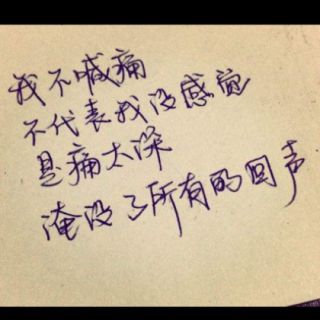 我不喊痛
不代表我没感觉
是痛太深
淹没了所有的回声